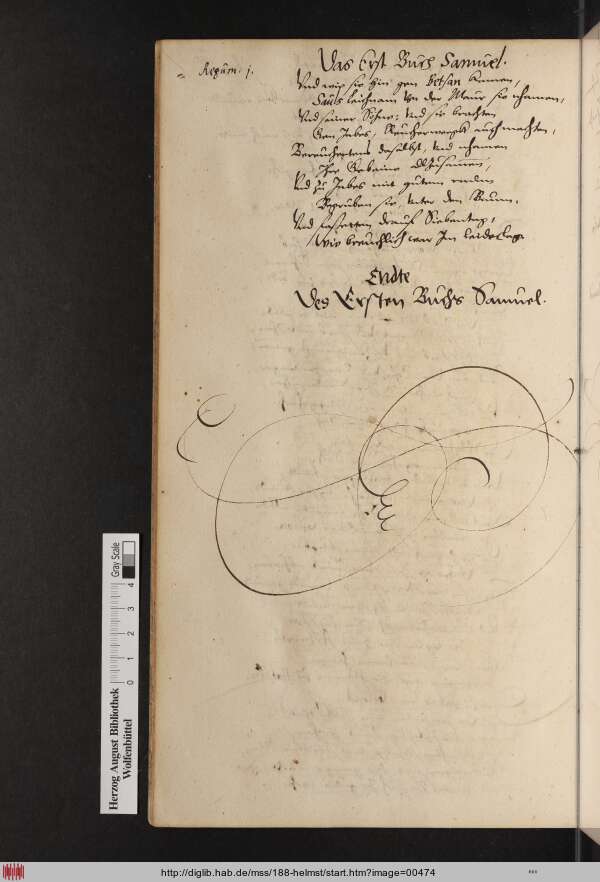 Das Erst Buch Samuel.
Regum: j.
Und wie sie hin gen betsan kamen,
Sauls leichnam Von der Maur sie nhamen,
Und seiner Söhne: Und sie brachten
Gen Jabes, Reucherwergk auch machten,
Bereuchertens daselbst, Und nhamen
Ihre Gebeine Allzusamen,
Und zu Jabes mit gutem
Begruben sie, Unter den Baum,
Und fasteten drauf Siebentag,
Wie breuchlich war Im
Endte
Des Ersten Buchs Samuel.
Gray Scale
0 1 2 3 4
Herzog August Bibliothek
Wolfenbüttel
http://diglib.hab.de/mss/188-helmst/start.htm?image=00474